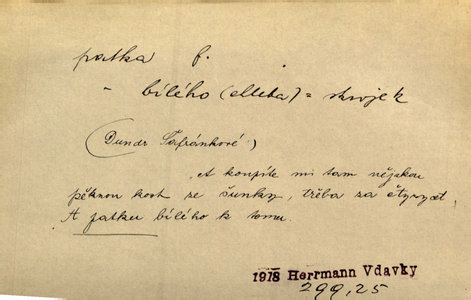 patka f.
" bílého (chleba) = skrojek
(Dundr Šafránkové)
A koupíte mi tam nějakou
pěknou kost ze šunky, třeba za čtyrycet
A patku bílého k tomu.
1918 Herrmann Vdavky
299,25